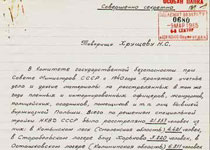 Совершенно секретно
ОСОБАЯ ПАПКА
0680
9 МАР 1965
Товарищу Хрущеву Н.С.
В Комитете государственной безопасности при
Совете Министров СССР с 1940 года хранятся учетные
дела и другие материалы на расстрелянных в том же
году пленных и интернированных офицеров, жандармов,
полицейских, осадников, помещиков и т.п. лиц бывшей
буржуазной Польши. Всего по решениям специальной
тройки НКВД СССР было расстреляно 21.857 человек, из
них: в Катынском лесу (Смоленская область) 4.421 человек,
в Старобельском лагере близ Харькова 3.820 человек, в
Осташковском лагере (Калининская область) 6.311 человек